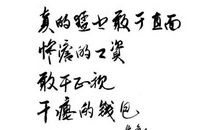 真的猛士敢于直面
惨澹的工資
敢于正视
干瘪的钱包